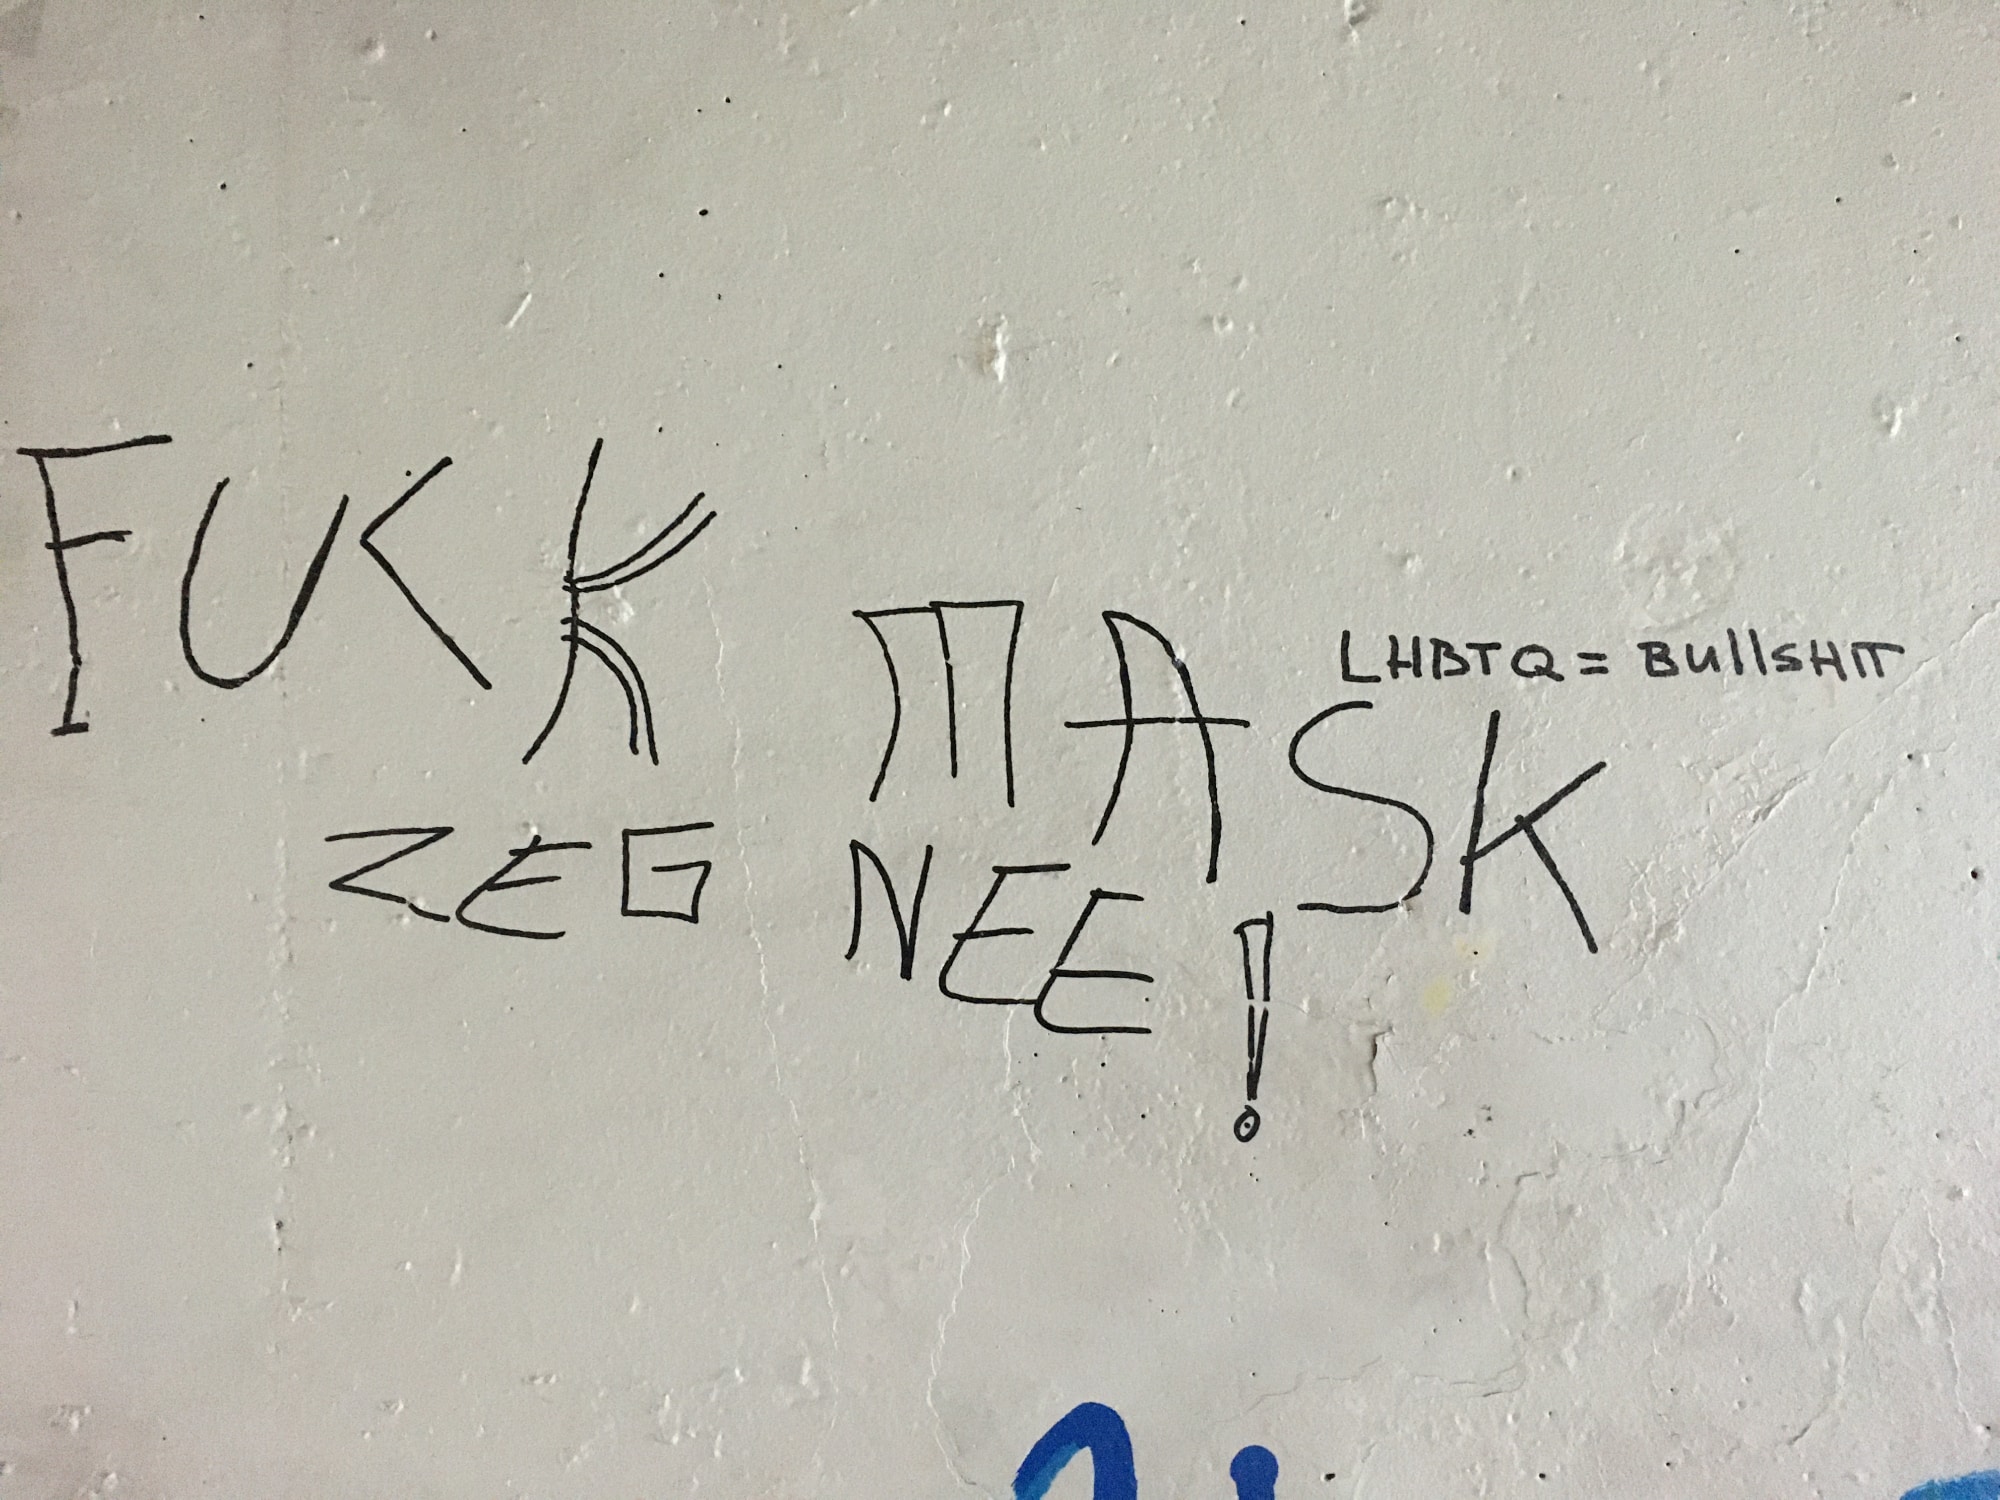 FUCK MASK
LHBTQ = BullsHIT
ZEG NEE!